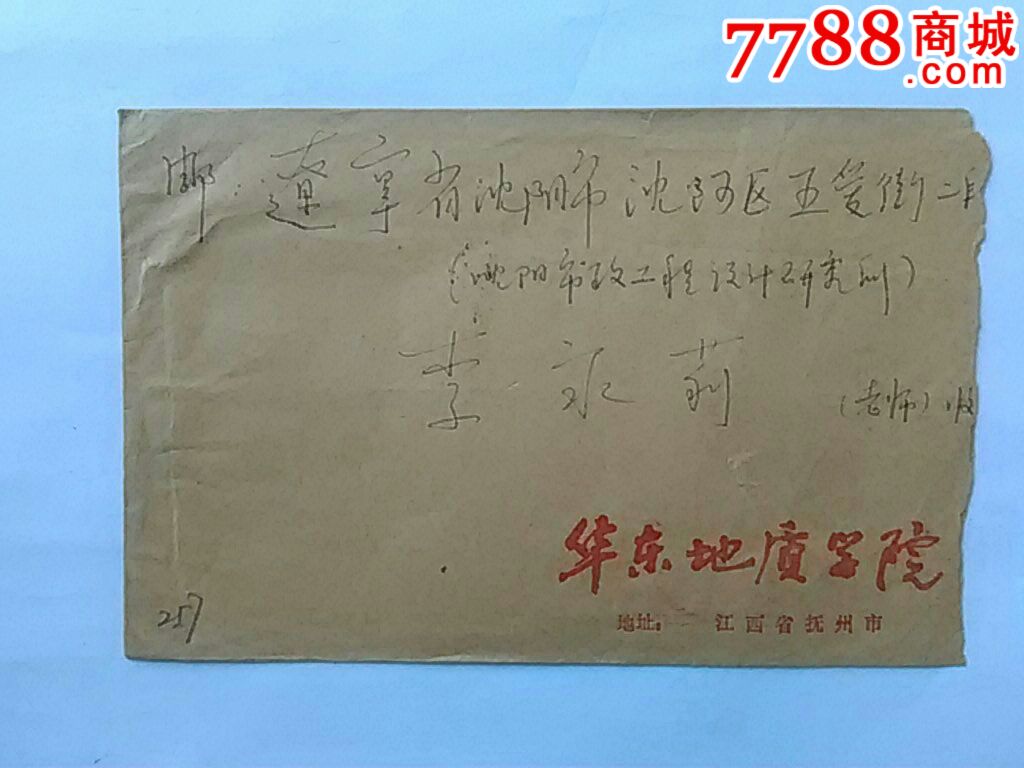 7788商城
.com
邮: 辽宁省沈阳市沈河区五爱街二段
(沈阳市政工程设计研究所)
李 永 莉 (老师) 收
华东地质学院
地址: 江西省抚州市
257